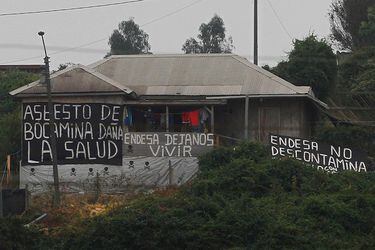 ASBESTO DE
BOCAMINA DAÑA
LA SALUD
ENDESA DEJANOS
VIVIR
ENDESA NO
DESCONTAMINA